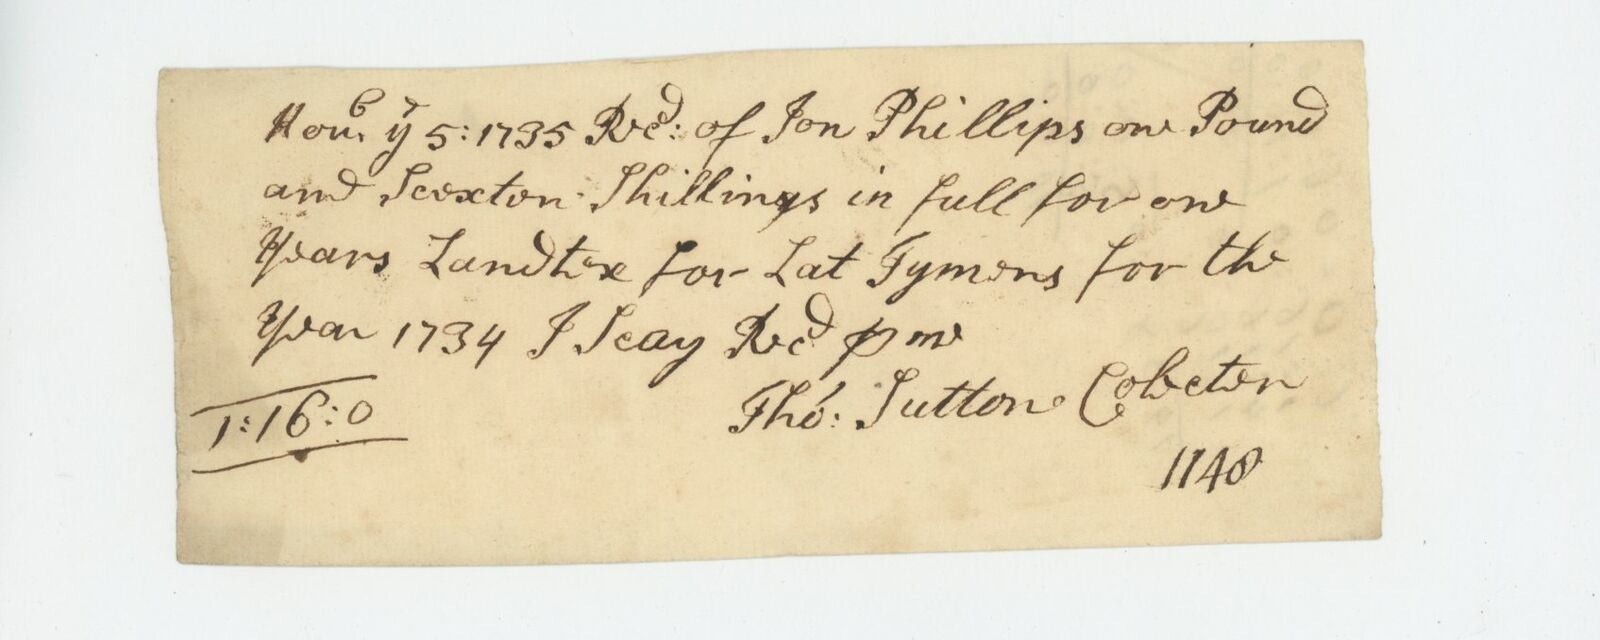 Nou^b. y^e 5: 1735 Rec^d: of Jon Phillips one Pound
and Seexten Shillings in full for one
Years Landtex for Lat Tymens for the
Year 1734 I Seay Rec^d p me
Tho: Sutton Colecter
1:16:0
1148